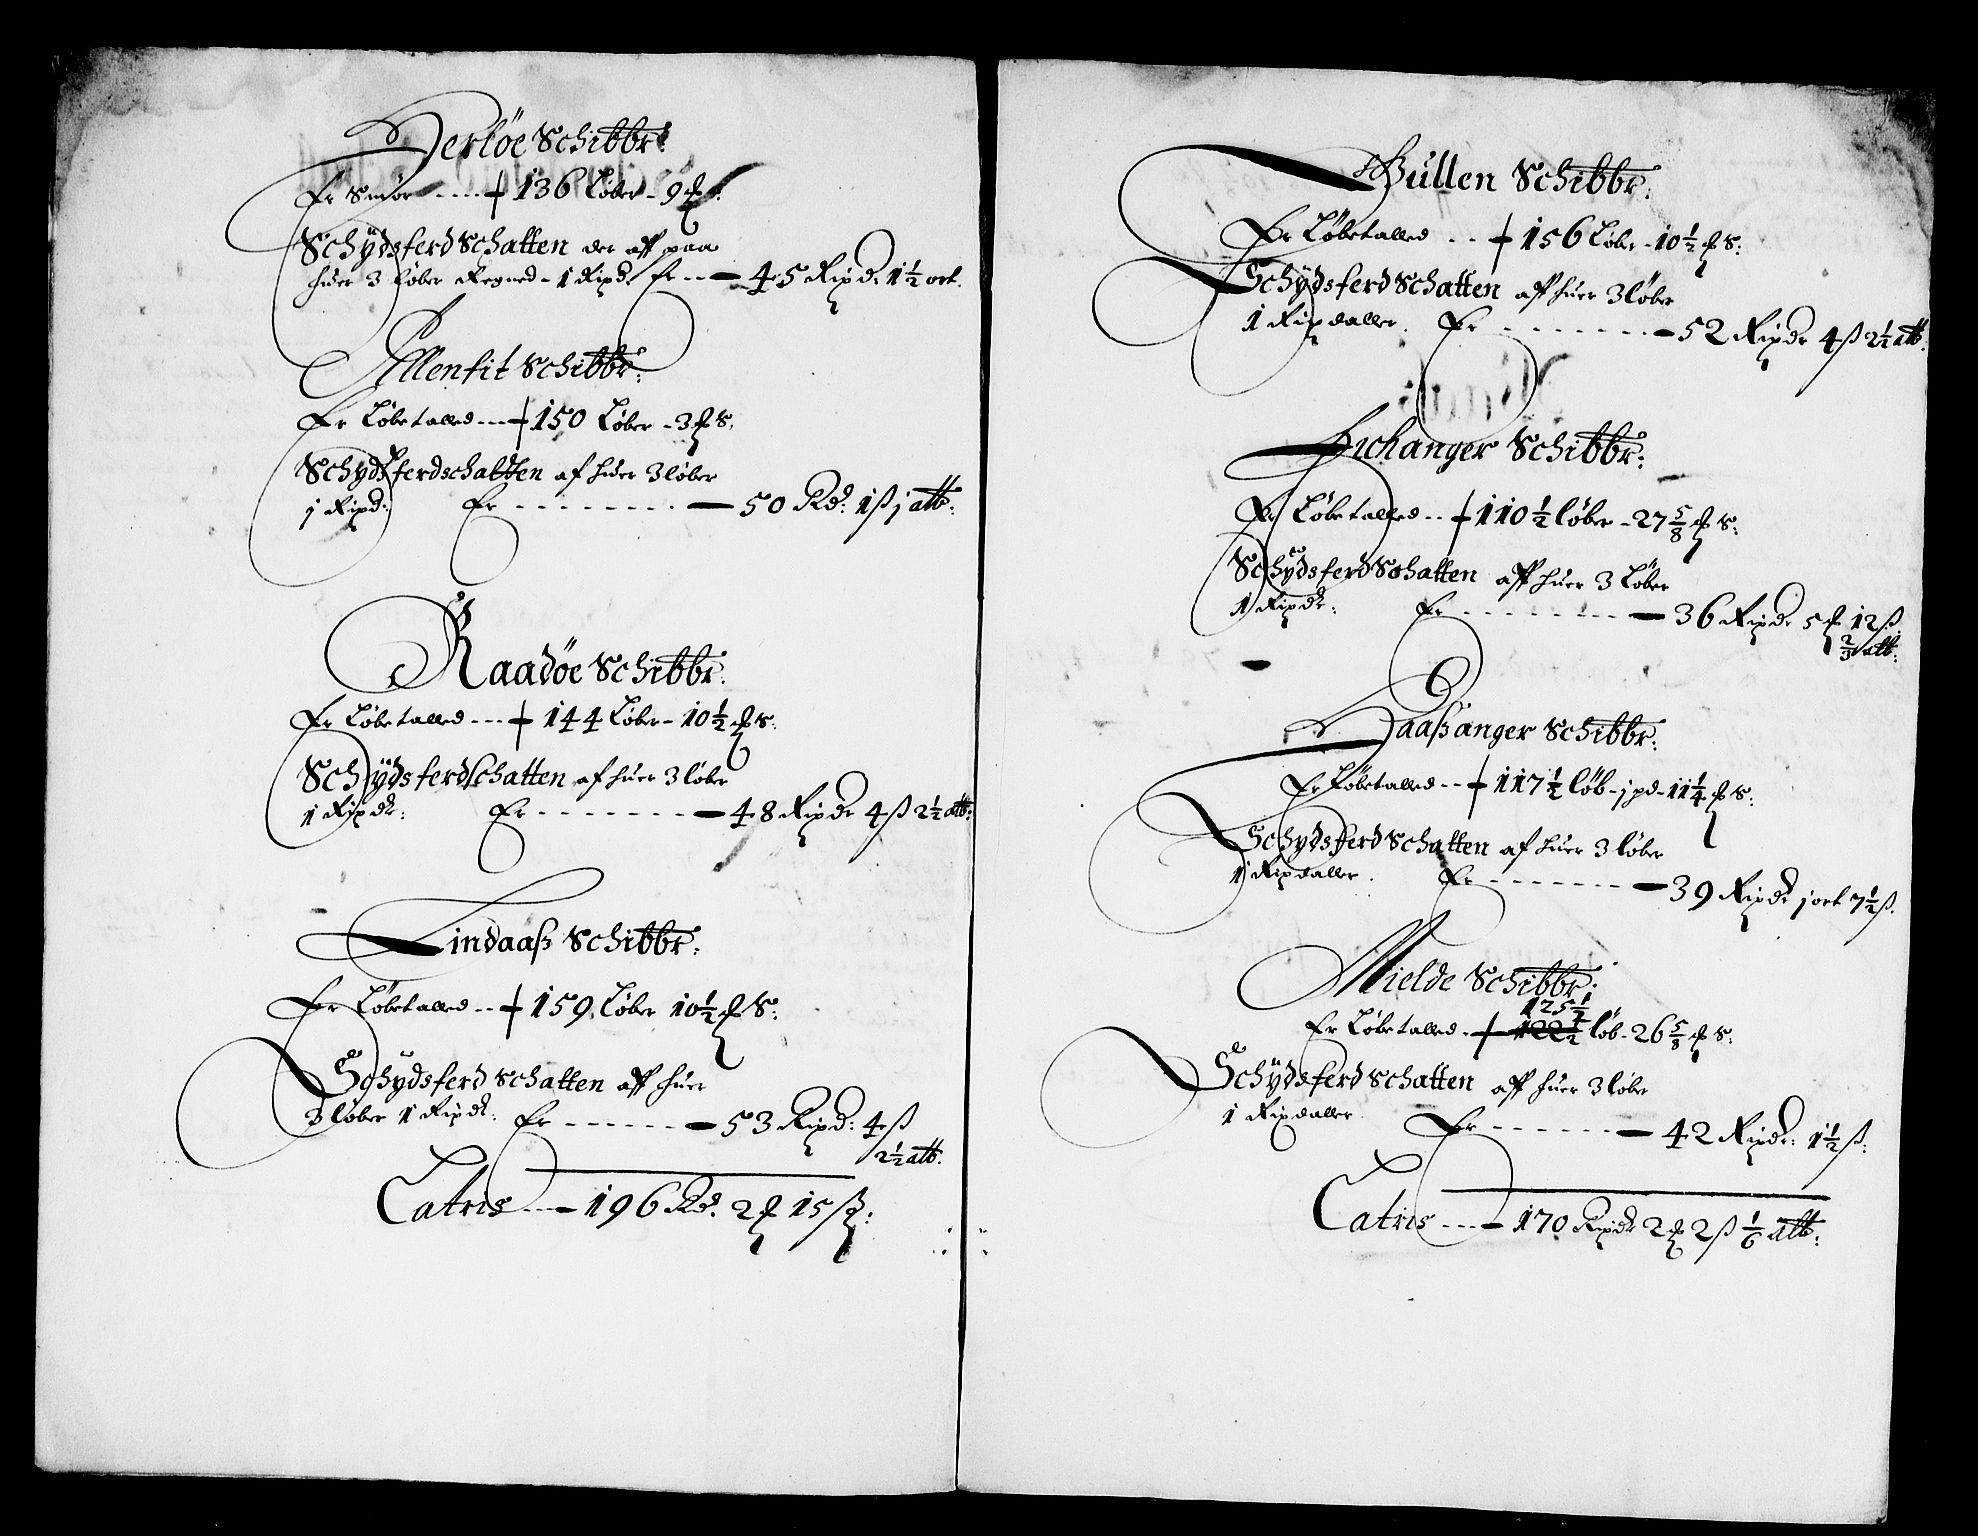 Herløe Schibbr:
Er Smør ---- 136 Løber - 9 ȹ:
Schÿdsferd Schatten der aff paa
huer 3 Løber Regned - 1 Rixd. Er -- 45 Rixd: 1½ ort.
Allenfit Schibbr:
Er Løbetalled --- 150 Løber - 3 ȹ S.
Schydsferdschatten af huer 3 løber
j Rixd: Er - - - - - - - 50 Rd: 1 ß j alb:
Raadöe Schibbr:
Er Løbetalled --- 144 Løber - 10½ ȹ S:
Schÿdsferdschatten af huer 3 løber
1 Rixdr: Er - - - - - - - 48 Rixdr 4 ß 2½ alb:
Lindaaß Schibbr:
Er Løbetalled -- 159 Løber 10½ ȹ S:
Schydsferd Schatten aff huer
3 løber 1 Rixdr: Er - - - - - - 53 Rixd: 4 ß
2½ alb:
Latris --- 196 Rd. 2 ȹ 15 ß:
Gullen Schibbr:
Er Løbetalled -- 156 Løber - 10½ ȹ S:
Schÿdsferd Schatten aff huer 3 løber
1 Rixdaller. Er - - - - - - - - 52 Rixdr 4 ß 2½ alb:
Echanger Schibbr:
Er Løbetalled -- 110½ løber - 27 5/8 ȹ S:
Schÿdsferd Schatten aff huer 3 Løber
1 Rixdr: Er - - - - - - - - 36 Rixdr 5 ȹ 12 ß
2/3 alb:
Haaßanger Schibbr:
Er Løbetalled -- 117½ løb - j pd - 11¼ ȹ S:
Schydsferd Schatten af huer 3 løber
1 Rixdaller. Er - - - - - - - 39 Rixdr j ort 7½ ß.
Mielde Schibbr:
125½
Er Løbetalled - 122½ løb - 26 5/8 ȹ S:
Schÿdsferd Schatten aff huer 3 løber
1 Rixdaller. Er - - - - - - - 42 Rixdr: 1½ ß:
Latris --- 170 Rixdr 2 ȹ 2 ß 1/6 alb: